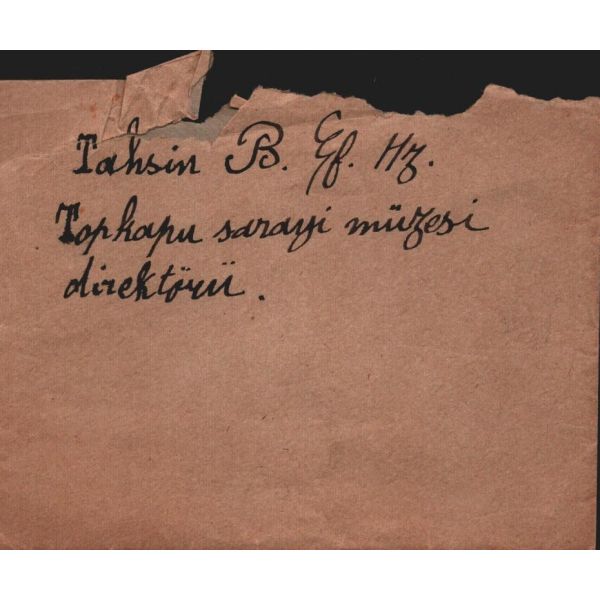 Tahsin B. Ef. Hz.
Topkapu sarayi müzesi
direktörü.